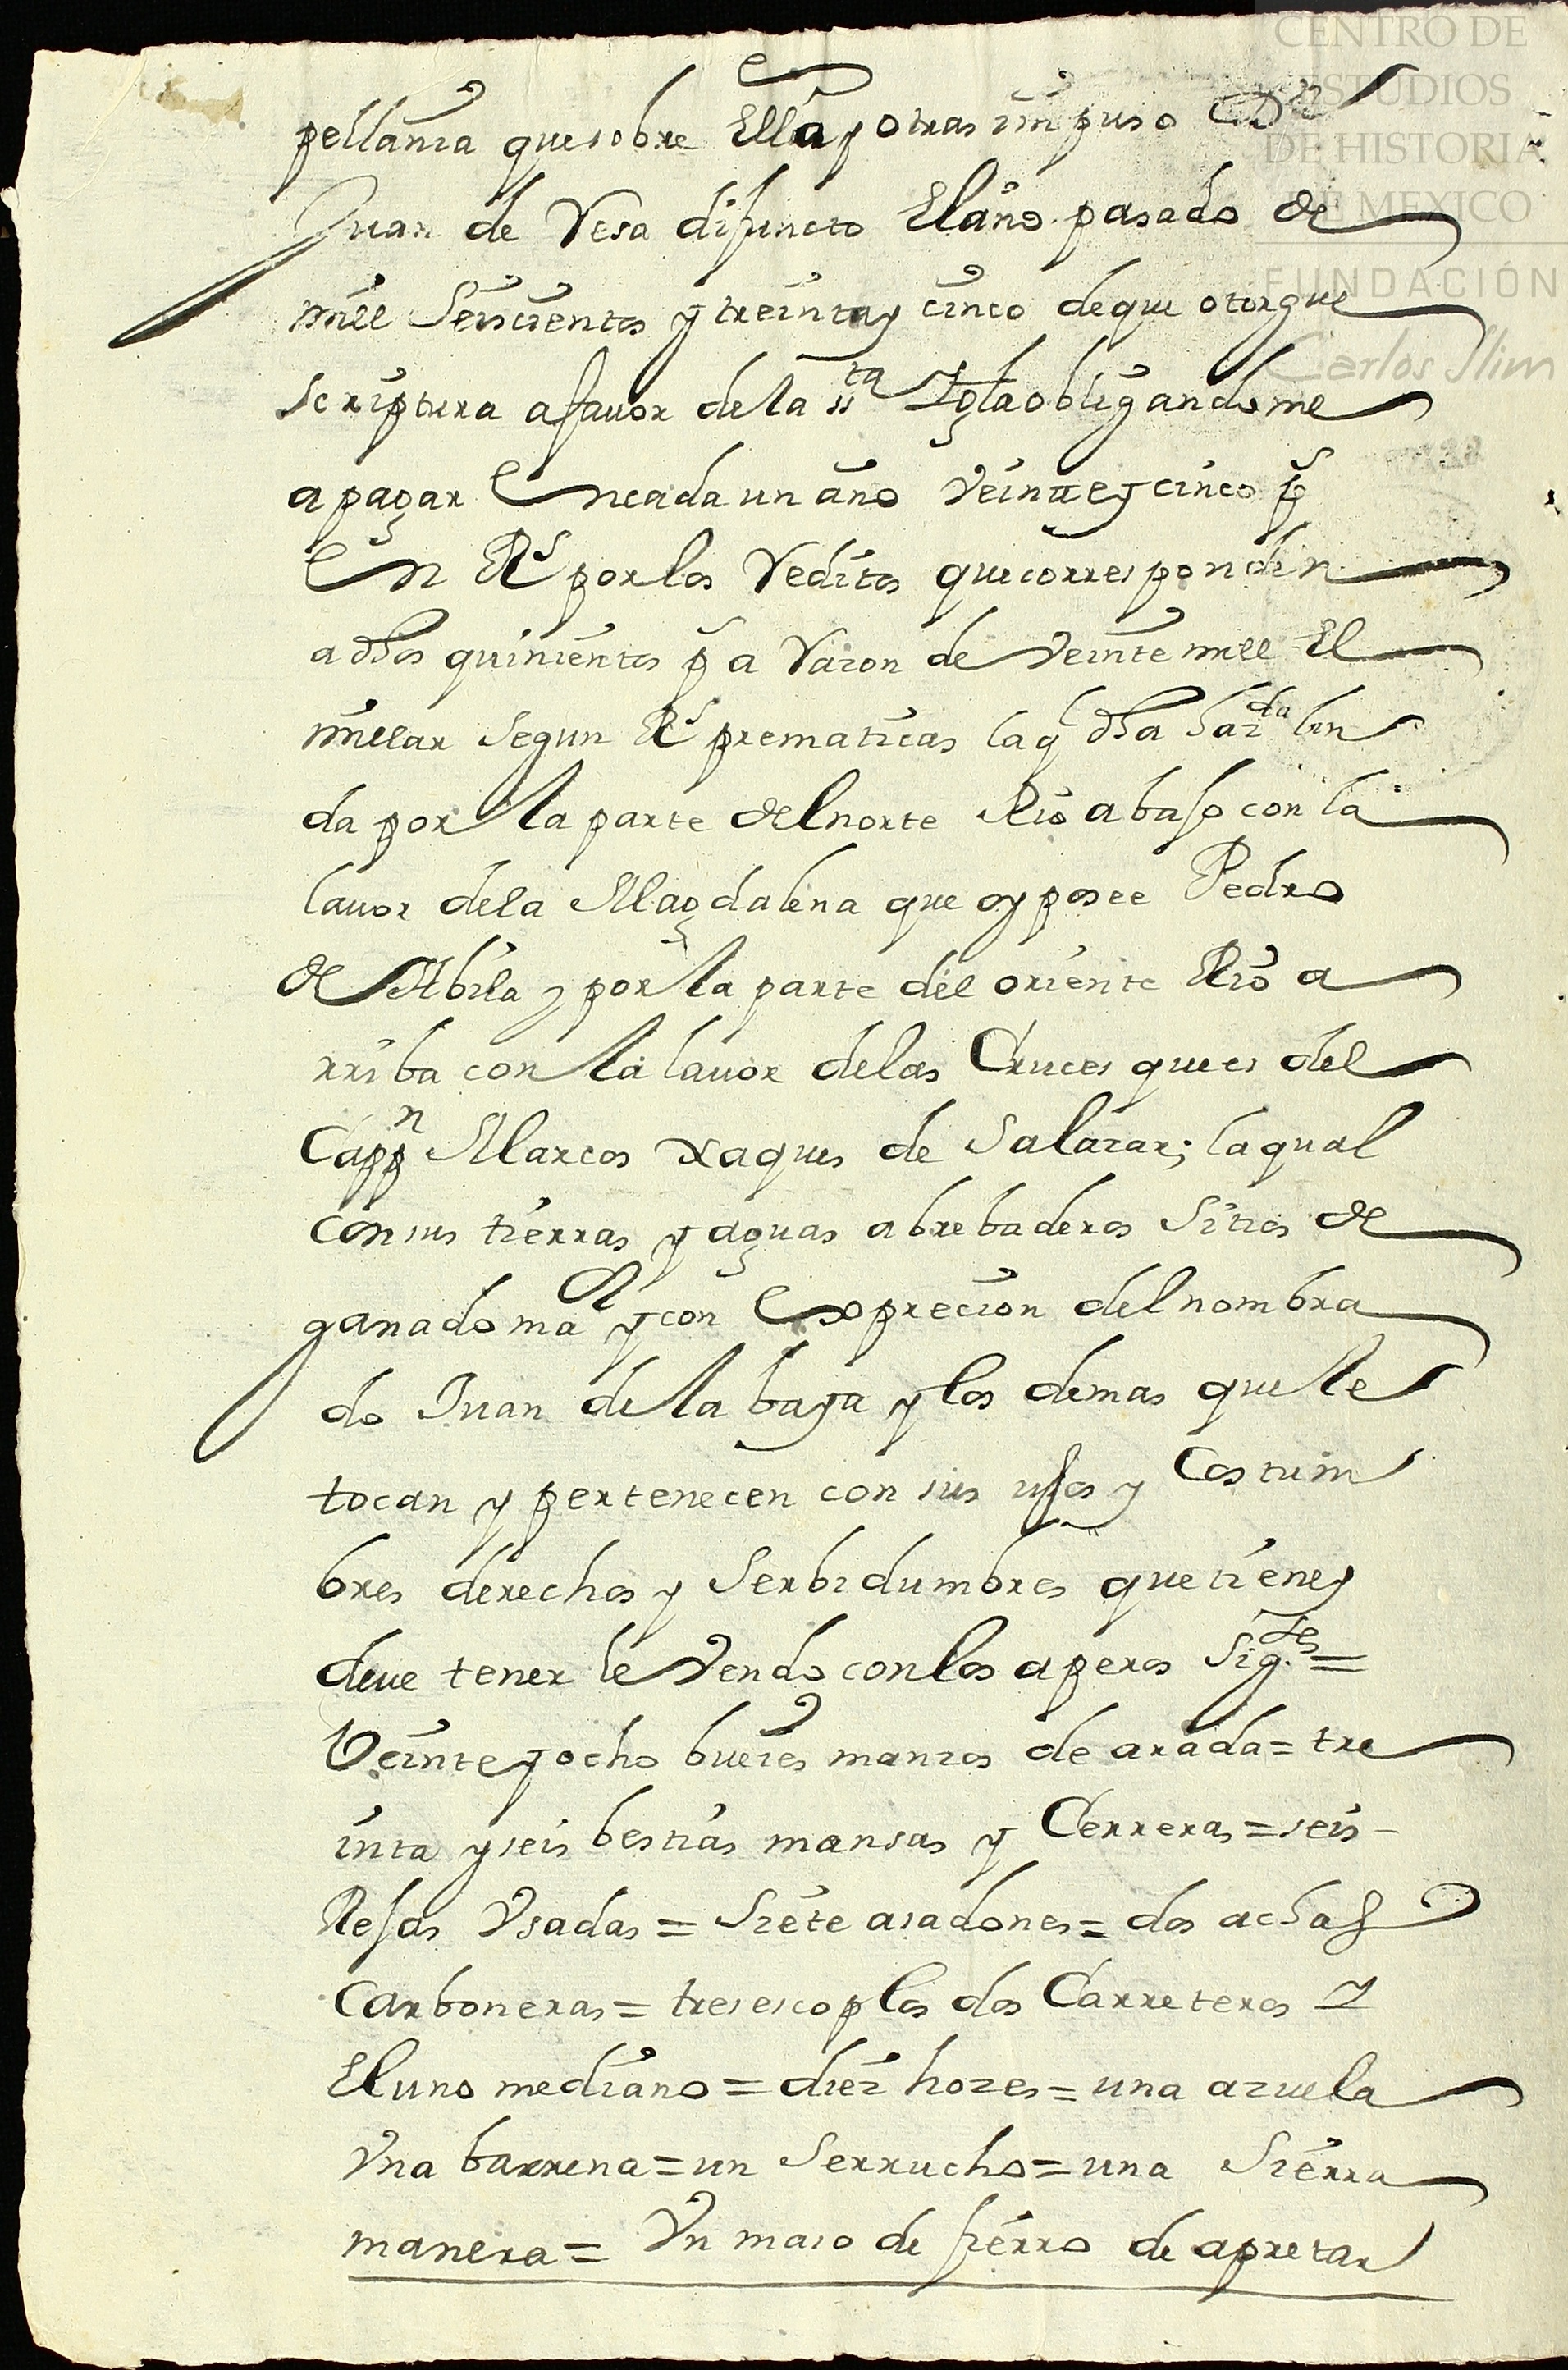 CENTRO DE
ESTUDIOS
DE HISTORIA
DE MEXICO
FUNDACIÓN
Carlos Slim
pellania que sobre Ella y otras impuso Dn
Juan de Vesa difuncto El año pasado de
mill Seiscientos y treinta y cinco de que otorgue
scriptura a fauor de la sta Ygla obligandome
a pagar En cada un año Veinte y cinco ps
En Rs por los Reditos que corresponden
a dhos quinientos ps a Razon de Veinte mill El
millar Segun Rs prematicas la q dha hazda lin
da por la parte del norte Rio abajo con la
lauor de la Magdalena que oy posee Pedro
de Abila y por la parte del oriente Rio a
rriba con la lauor de las Cruces que es del
Cappn Marcos Xaques de Salazar; la qual
con sus tierras y aguas abrebaderos Sitios de
ganado mar y con Exprecion del nombra
do Juan de la baya y los demas que le
tocan y pertenecen con sus usos y Costum
bres derechos y Serbidumbres que tiene y
deue tener le Vendo con los aperos Sigtes =
Veinte y ocho bueies manzos de arada = tre
inta y seis bestias mansas y Cerreras = seis -
Rejas Vsadas = Siete asadones = dos achas
Carboneras = tres escoplos dos Carreteros y
El uno mediano = diez hozes = una azuela
Vna barrena = un Serrucho = una Sierra
manera = Vn maso de fierro de apretar